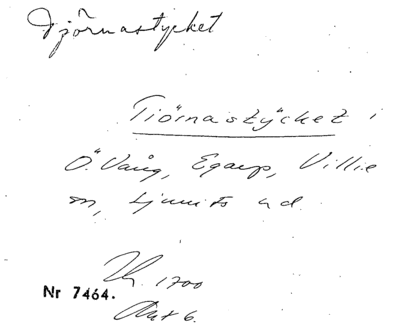 Tjörnastycket
Tiörnastÿcket i
Ö. Vång, Egarp, Villie
sn, Ljunits hd.
1700
Nr 7464.
Akt 6.